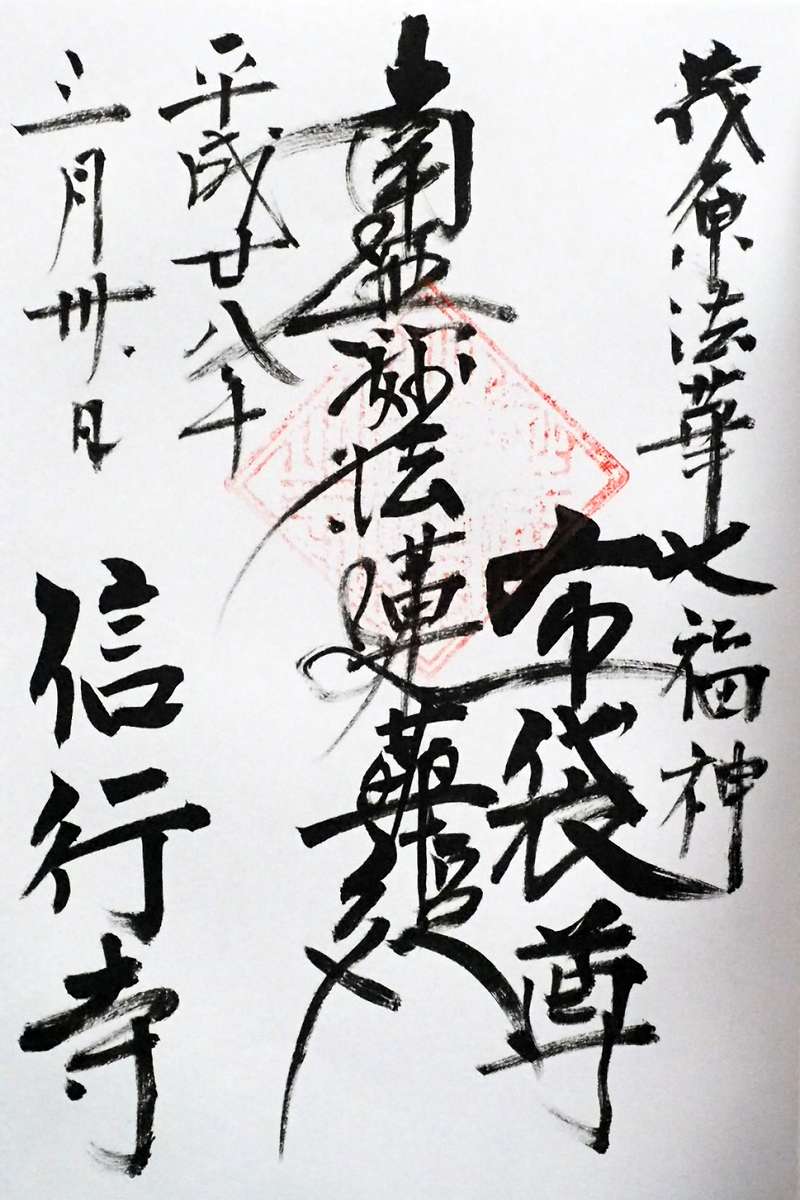 茂原法華七福神
布袋尊
南無妙法蓮華経
平成廿八年
三月卅日
信行寺